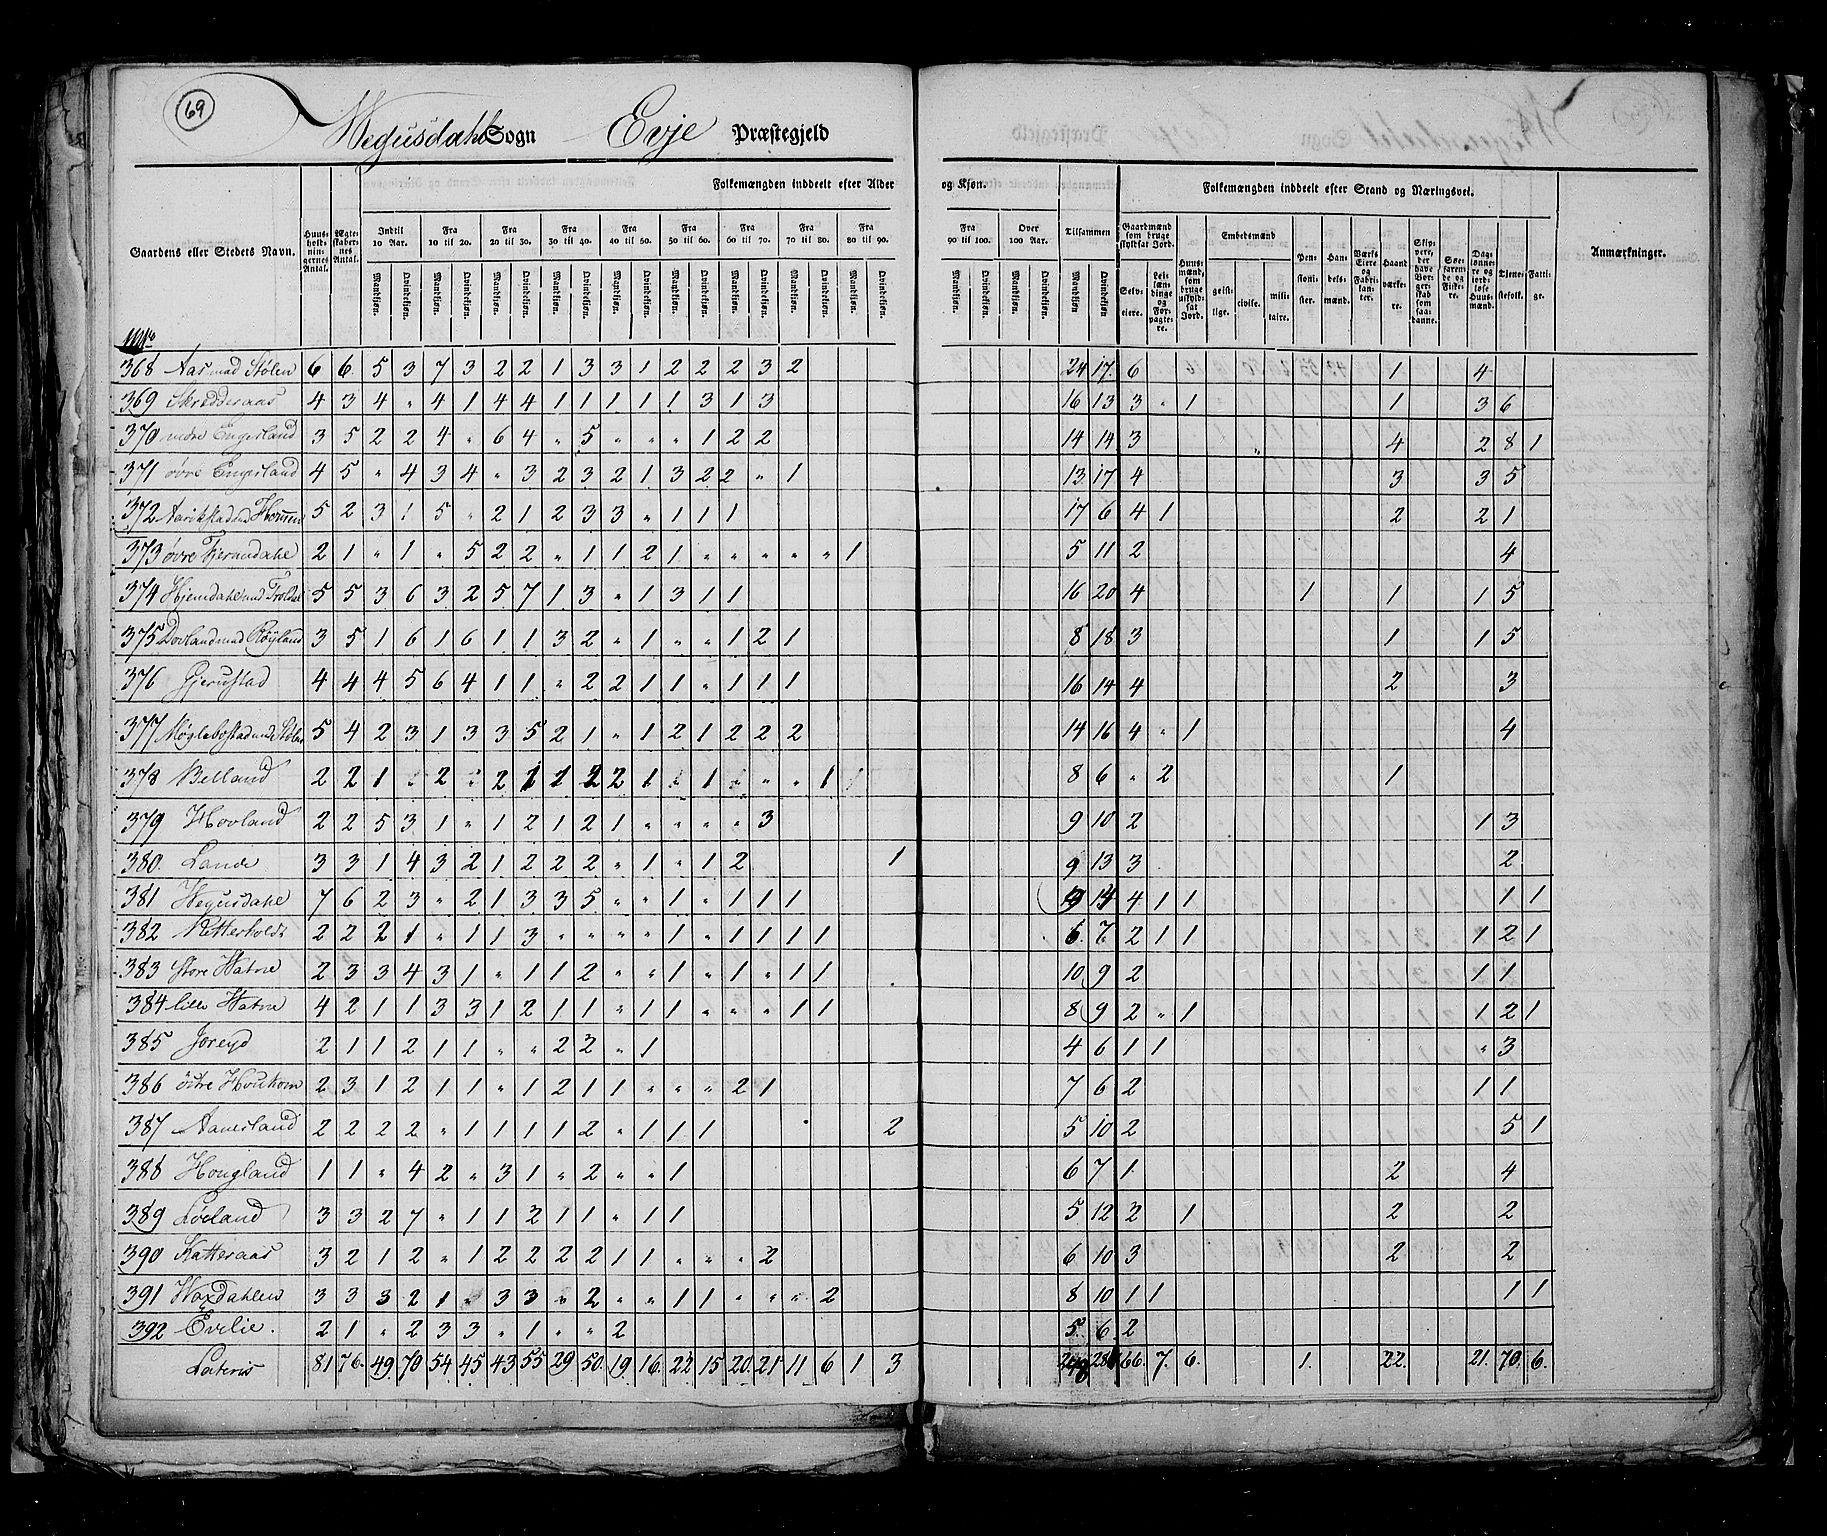 69
Wegusdahl Sogn Evje Præstegjeld
Folkemængden inddeelt efter Alder og Kjøn. Folkemængden inddeelt efter Stand og Næringsvei.
Gaardens eller Stedets Navn. Huusholdningernes Antal. Ægteskabernes Antal. Indtil 10 Aar. Fra 10 til 20. Fra 20 til 30. Fra 30 til 40. Fra 40 til 50. Fra 50 til 60. Fra 60 til 70. Fra 70 til 80. Fra 80 til 90. Fra 90 til 100. Over 100 Aar. Tilsammen Gaardmænd som bruge skyldsat Jord. Huusmænd, som bruge uskyldsat Jord. Embedsmænd Pensionister. Handelsmænd. Værks Eiere og Fabrikanter. Haandværkere. Skippere, der have Borgerskab som saadanne. Søefarende og Fiskere. Daglønnere og jordløse Huusmænd. Tjenestefolk. Fattige. Anmærkninger.
Mandkjøn. Qvindekjøn. Selveiere. Leilændinge og Forpagtere. geistlige. civile. militaire.
368 Aas med Stølen 6 6 5 3 7 3 2 2 1 3 3 1 2 2 2 3 2 24 17 6 1 4
369 Skredderaas 4 3 4 „ 4 1 4 4 1 1 1 1 1 3 1 3 16 13 3 „ 1 1 3 6
370 nedre Engerland 3 5 2 2 4 „ 6 4 „ 5 „ „ „ 1 2 2 14 14 3 4 2 8 1
371 øvre Engerland 4 5 „ 4 3 4 „ 3 2 3 2 1 3 2 2 „ 1 13 17 4 3 3 5
372 5 2 3 1 5 „ 2 1 2 3 3 „ 1 1 1 17 6 4 1 2 2 1
373 øvre 2 1 „ 1 „ 5 2 2 „ 1 1 2 1 „ „ „ „ „ 1 5 11 2 4
374 Hjemdahl med 5 5 3 6 3 2 5 7 1 3 „ 1 3 1 1 16 20 4 1 1 1 5
375 Dovland med Røyland 3 5 1 6 1 6 1 1 3 2 „ 1 „ „ 1 2 1 8 18 3 1 1 5
376 Gjerustad 4 4 4 5 6 4 1 1 „ 2 2 1 1 „ 1 1 1 16 14 4 2 3
377 Møglebostad med Støle 5 4 2 3 1 3 3 5 2 1 „ 1 2 1 2 2 2 14 16 4 „ 1 4
378 Belland 2 2 1 „ 2 „ 2 1 1 2 2 1 „ 1 „ „ „ 1 8 6 „ 2 1
379 Hovland 2 2 5 3 1 „ 1 2 1 2 1 „ „ „ „ 3 9 10 2 1 3
380 Lande 3 3 1 4 3 2 1 2 2 2 „ 1 „ 1 2 1 9 13 3 2
381 Wegusdahl 7 6 2 3 „ 2 1 3 3 5 „ „ 1 „ 1 1 1 9 14 4 1 1 1 1
382 Netterholdt 2 2 2 1 „ 1 1 3 „ „ „ „ 1 „ 1 1 1 1 6 7 2 1 1 1 2 1
383 Store Hatne 2 3 3 4 3 1 „ 1 1 2 „ „ 1 „ 1 „ 1 1 10 9 2 1 1
384 lille Hatne 4 2 1 1 3 3 1 2 1 1 „ 1 1 „ „ „ 1 1 8 9 2 „ 1 1 2 1
385 Joreid 2 1 1 2 1 1 „ „ 2 2 „ 1 4 6 1 1 „ 3
386 østre 2 3 1 2 1 1 „ 1 2 1 1 „ „ „ 2 1 7 6 2 1 1
387 2 2 2 2 „ 1 1 1 1 2 „ 1 1 1 2 5 10 2 5 1
388 Hougland 1 1 „ 4 2 „ 3 1 „ 2 „ „ 1 6 7 1 2 4
389 Løeland 3 3 2 7 „ 1 1 2 1 1 „ 1 1 5 12 2 1 2 2
390 Katteraas 3 2 1 2 „ 1 2 2 2 2 1 1 „ „ „ 2 6 10 3 2 2
391 3 3 3 2 1 „ 3 3 „ 2 „ „ 1 1 „ „ „ 2 8 10 1 1 1 1
392 Evelie. 2 1 „ 2 3 3 „ 1 „ „ 2 5 6 2
Lateris 81 76 49 70 54 45 43 55 29 50 19 16 22 15 20 21 11 6 1 3 66 7 6 1 22 21 70 6